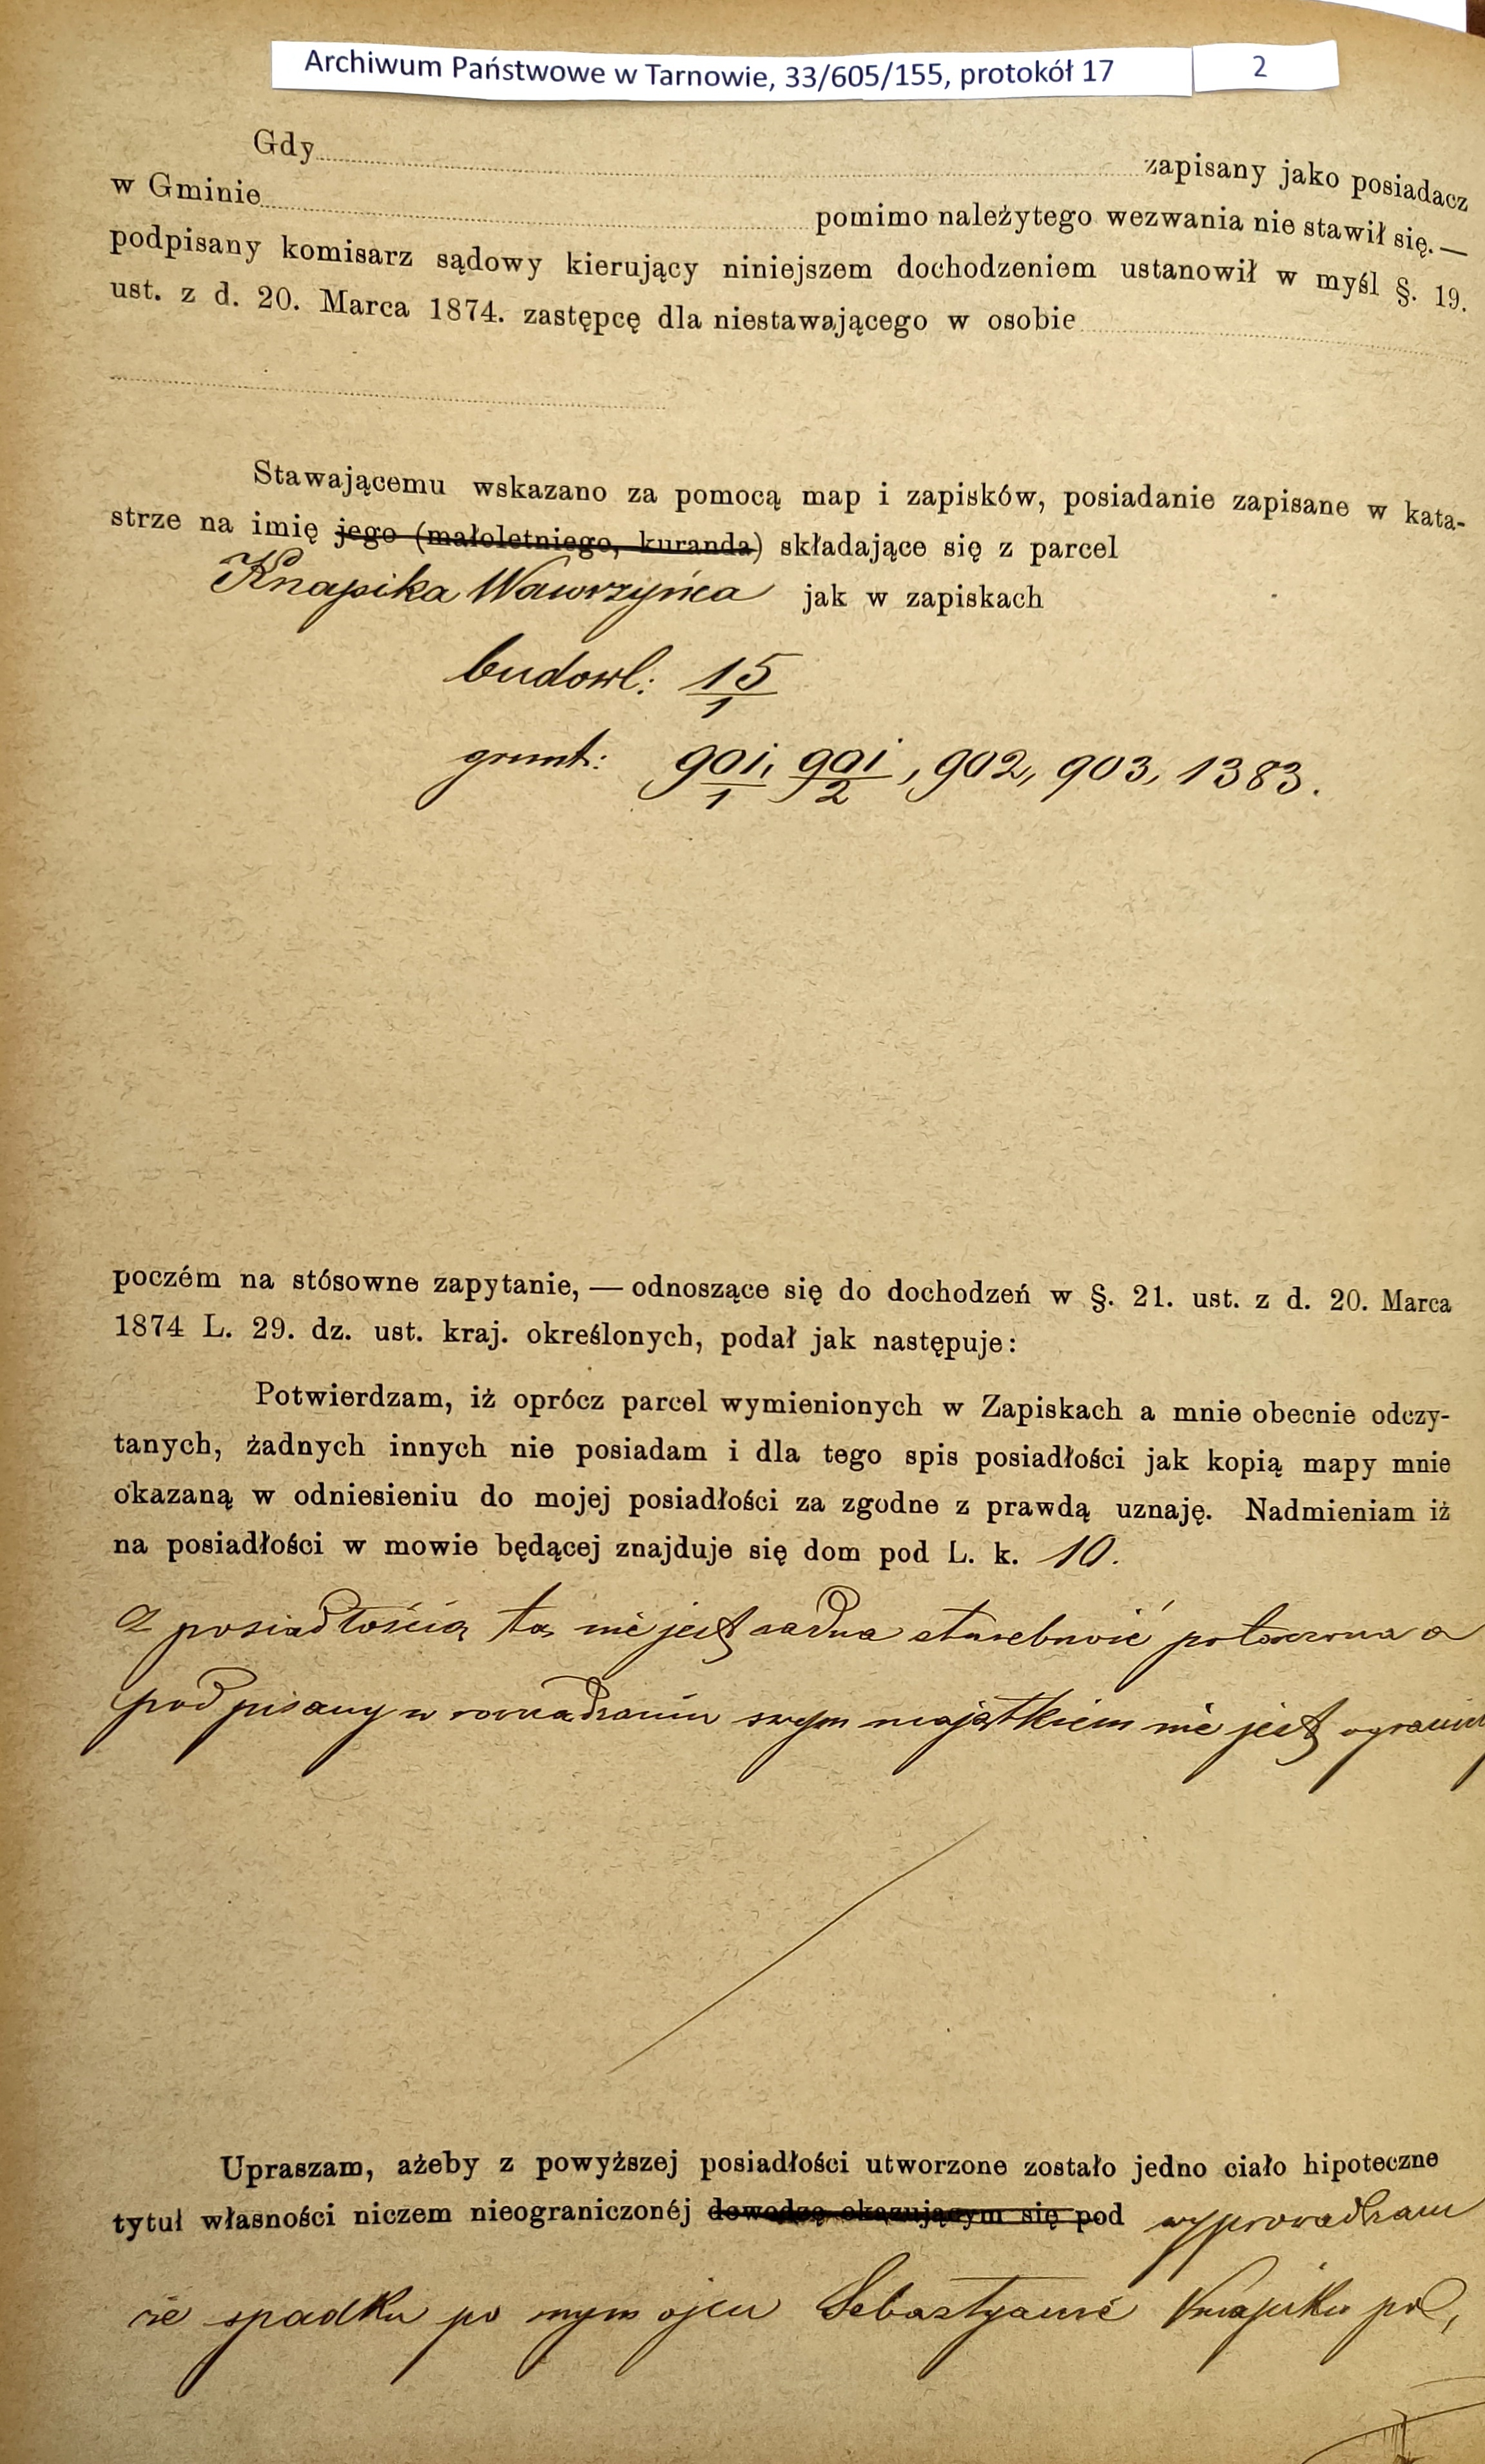 Archiwum Państwowe w Tarnowie, 33/605/155, protokół 17 2
Gdy zapisany jako posiadacz
w Gminie pomimo należytego wezwania nie stawił się. —
podpisany komisarz sądowy kierujący niniejszem dochodzeniem ustanowił w myśl §. 19.
ust. z d. 20. Marca 1874. zastępcę dla niestawającego w osobie
Stawającemu wskazano za pomocą map i zapisków, posiadanie zapisane w kata-
strze na imię jego (małoletniego, kuranda) składające się z parcel
Knapika Wawrzyńca jak w zapiskach
budowl: 15/1
grunt: 901/1, 901/2, 902, 903, 1383.
poczém na stósowne zapytanie, — odnoszące się do dochodzeń w §. 21. ust. z d. 20. Marca
1874 L. 29. dz. ust. kraj. określonych, podał jak następuje:
Potwierdzam, iż oprócz parcel wymienionych w Zapiskach a mnie obecnie odczy-
tanych, żadnych innych nie posiadam i dla tego spis posiadłości jak kopią mapy mnie
okazaną w odniesieniu do mojej posiadłości za zgodne z prawdą uznaję. Nadmieniam iż
na posiadłości w mowie będącej znajduje się dom pod L. k. 10.
Z posiadłością tą nie jest żadna służebność połączona a
podpisany w zarządzaniu swym majątkiem nie jest
Upraszam, ażeby z powyższej posiadłości utworzone zostało jedno ciało hipoteczne
tytuł własności niczem nieograniczonéj dowodzę okazującym się pod wyprowadzam
ze spadku po mym ojcu Sebastyanie Knapiku